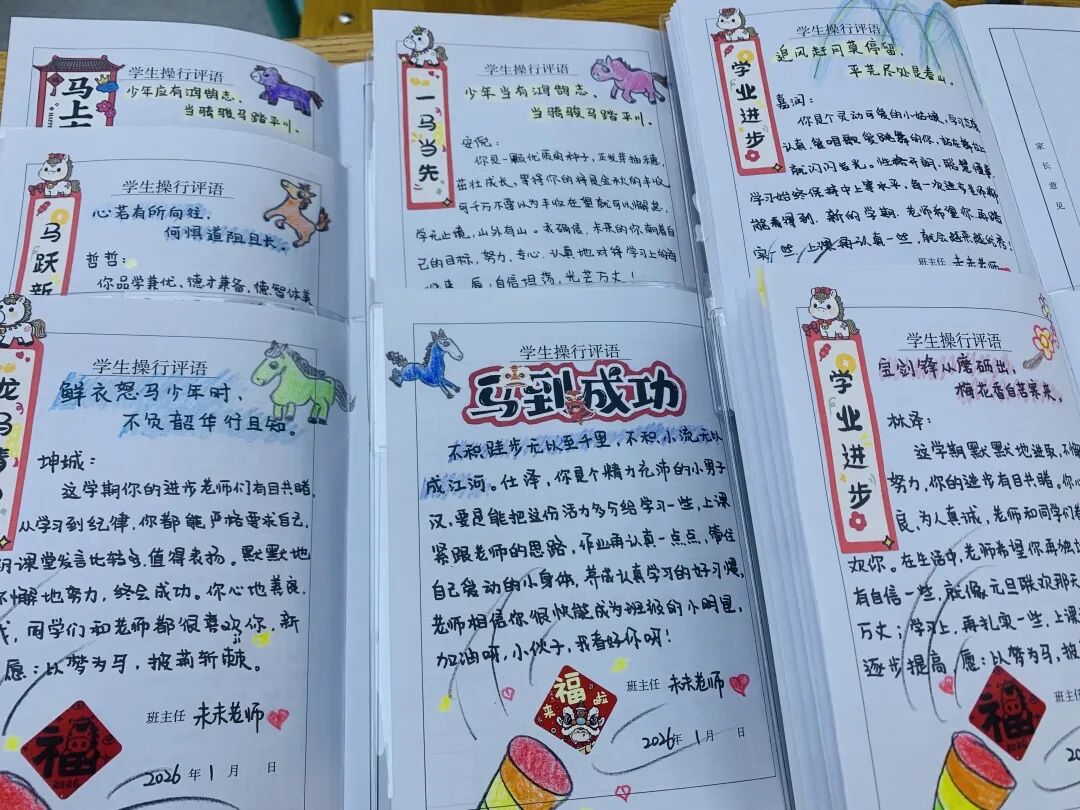 马上
学生操行评语
少年应有鸿鹄志,
当骑骏马踏平川。
马跃新
学生操行评语
心若有所向往,
何惧道阻且长。
哲哲:
你品学兼优,德才兼备,德智体美
龙马精
学生操行评语
鲜衣怒马少年时,
不负韶华行且知。
坤城:
这学期你的进步老师们有目共睹,
从学习到纪律,你都能严格要求自己,
课堂发言比较多,值得表扬。默默地
懈地努力,终会成功。你心地善良,
同学们和老师都很喜欢你,新
愿:以梦为马,披荆斩棘。
班主任 未未老师
福
2026
2026年1月 日
一马当先
学生操行评语
少年当有鸿鹄志,
当骑骏马踏平川。
安妮:
你是一颗优质的种子,正发芽抽穗,
茁壮成长,等待你的将是金秋的丰收
可千万不要以为丰收在望就可以懈怠,
学无止境,山外有山。我确信,未来的你,朝着自
己的目标,努力、专心、认真地对待学习上的
愿:自信坦荡,光芒万丈!
学生操行评语
马到成功
不积跬步无以至千里,不积小流无以
成江河。仕泽,你是个精力充沛的小男子
汉,要是能把这份活力多分给学习一些,上课
紧跟老师的思路,作业再认真一点点,管住
自己爱动的小身体,养成认真学习的好习惯,
老师相信你很快能成为班级的小明星,
加油呀,小伙子,我看好你呀!
福
来 啦
班主任 未未老师
2026年1月 日
学业进步
学生操行评语
追风赶月莫停留,
平芜尽处是春山。
嘉润:
你是个灵动可爱的小姑娘,学习态度
认真,爱唱歌爱跳舞的你,站在舞台上
就闪闪发光。性格开朗,聪慧懂事,
学习始终保持中上等水平,每一次进步老师都
能看得到,新的学期,老师希望你再踏
实一些,上课再认真一些,就会越来越优秀!
班主任 未未老师
家长意见
学业进步
学生操行评语
宝剑锋从磨砺出,
梅花香自苦寒来。
林泽:
这学期默默地进取,不懈
努力,你的进步有目共睹。你心
良、为人真诚,老师和同学们都
欢你。在生活中,老师希望你再独立
有自信一些,就像元旦联欢那天
万丈;学习上,再扎实一些,上课
逐步提高 愿:以梦为马,披
班主任 未未老师
福
2026年1月